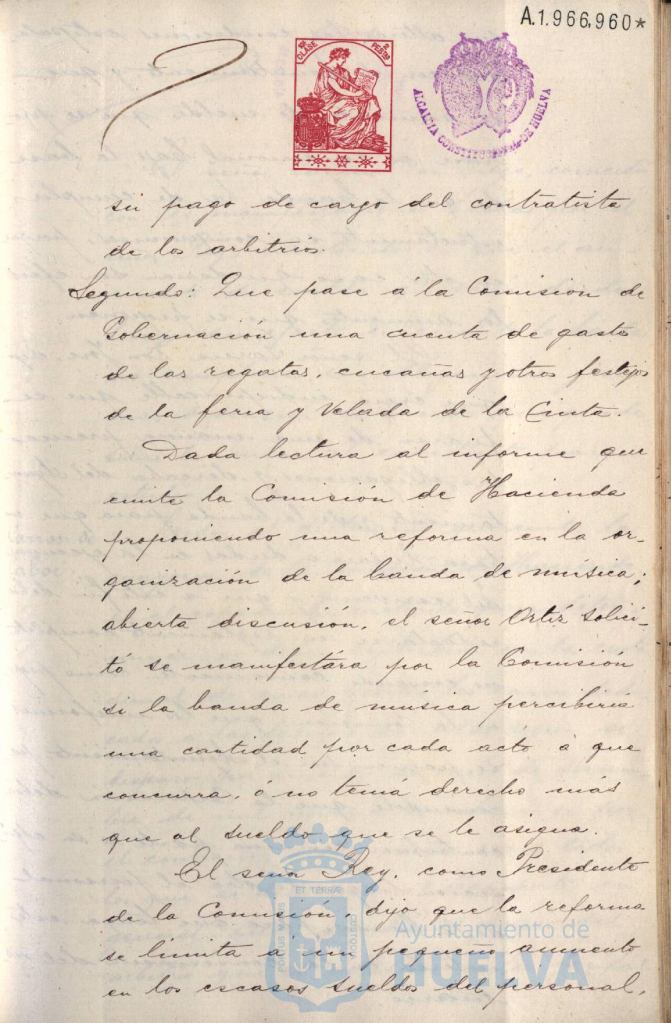 A.1.966,960*
CLASE
PESTS
ALCALDIA CONSTITUCIONAL DE HUELVA
su pago de cargo del contratista
de los arbitrios.
Segundo: Que pase á la Comision de
Gobernación una cuenta de gasto
de las regatas, cucañas y otros festejos
de la feria y Velada de la Cinta.
Dada lectura al informe que
emite la Comision de Hacienda
proponiendo una reforma en la or-
ganización de la banda de música;
abierta discusión, el señor Ortiz solici-
tó se manifestára por la Comisión
si la banda de música percibiria
una cantidad por cada acto á que
concurra, ó no tenia derecho más
que al sueldo que se le asigna.
El señor Rey, como Presidente
de la Comisión, dijo que la reforma
se limita a un pequeño aumento
en los escasos sueldos del personal,
PORTUS MARIS ET TERRAE CUSTODIA
Ayuntamiento de
HUELVA